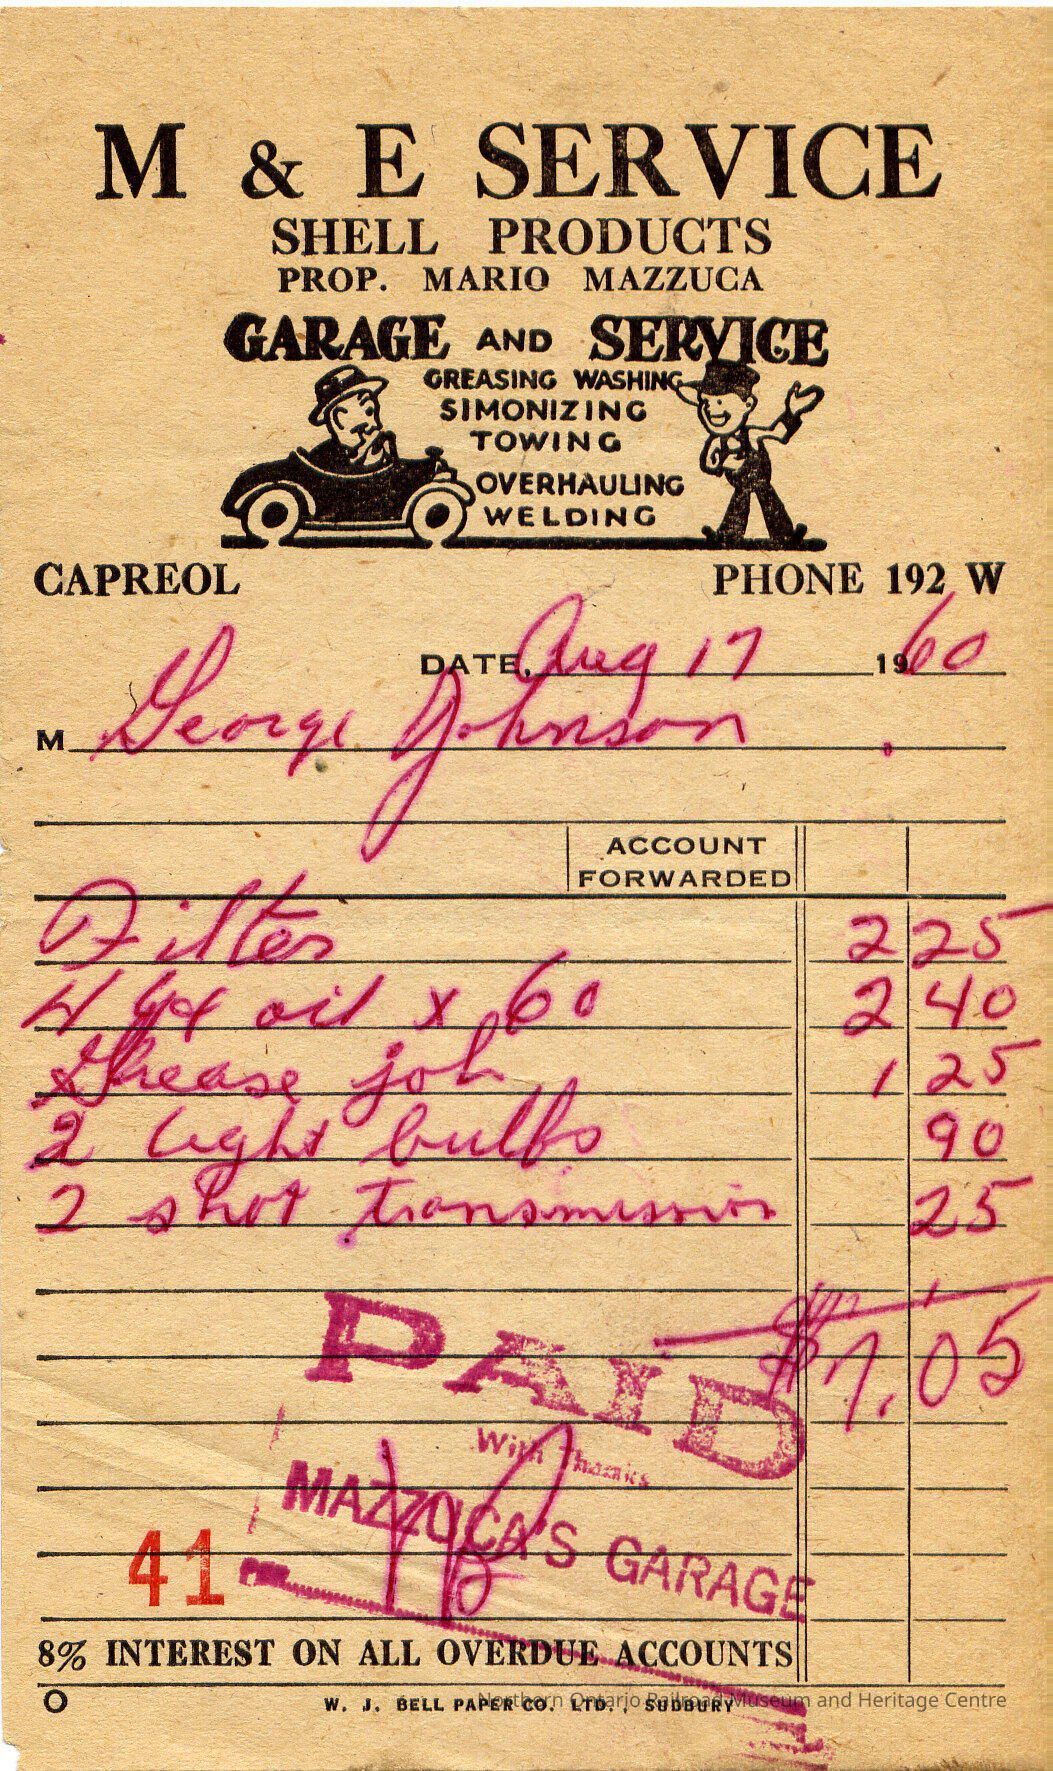 M & E SERVICE
SHELL PRODUCTS
PROP. MARIO MAZZUCA
GARAGE AND SERVICE
GREASING WASHING
SIMONIZING
TOWING
OVERHAULING
WELDING
CAPREOL PHONE 192 W
DATE, Aug 17 1960
M George Johnson
ACCOUNT
FORWARDED
Filter 2 25
4 oil x 60 2 40
Grease job 1 25
2 light bulbs 90
2 shot transmission 25
$7.05
PAID
With Thanks
MAZZUCA'S GARAGE
41
8% INTEREST ON ALL OVERDUE ACCOUNTS
W. J. BELL PAPER CO. LTD., SUDBURY
Northern Ontario Railroad Museum and Heritage Centre